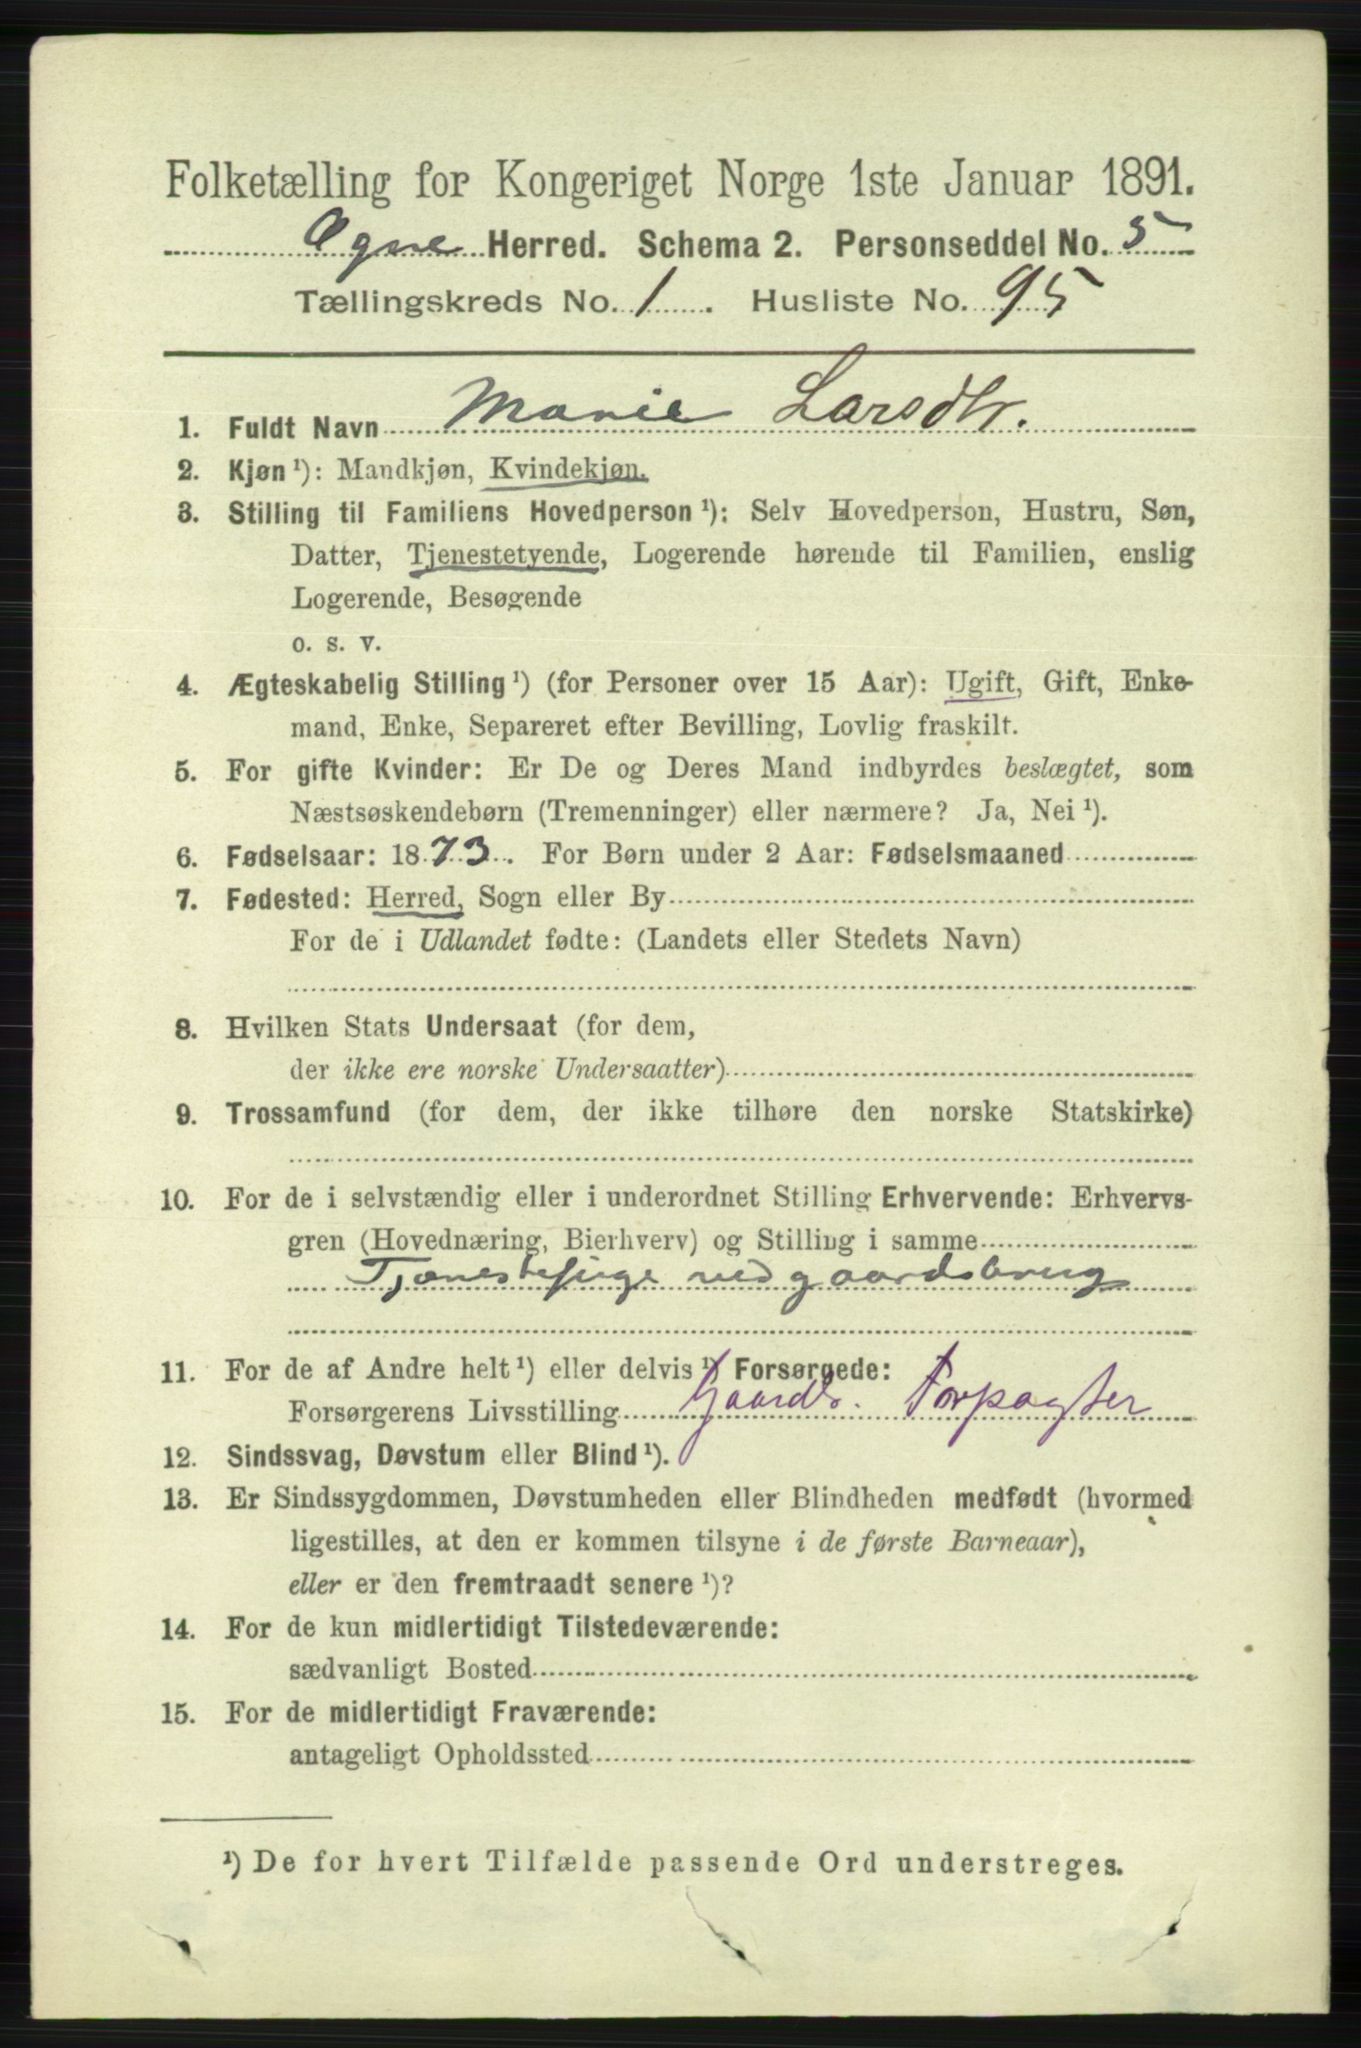 Folketælling for Kongeriget Norge 1ste Januar 1891.
Ogne Herred. Schema 2. Personseddel No. 5
Tællingskreds No. 1. Husliste No. 95
1. Fuldt Navn Marie Larsdtr.
2. Kjøn ¹): Mandkjøn, Kvindekjøn.
3. Stilling til Familiens Hovedperson ¹): Selv Hovedperson, Hustru, Søn,
Datter, Tjenestetyende, Logerende hørende til Familien, enslig
Logerende, Besøgende
o. s. v.
4. Ægteskabelig Stilling ¹) (for Personer over 15 Aar): Ugift, Gift, Enke-
mand, Enke, Separeret efter Bevilling, Lovlig fraskilt.
5. For gifte Kvinder: Er De og Deres Mand indbyrdes beslægtet, som
Næstsøskendebørn (Tremenninger) eller nærmere? Ja, Nei ¹).
6. Fødselsaar: 1873. For Børn under 2 Aar: Fødselsmaaned
7. Fødested: Herred, Sogn eller By
For de i Udlandet fødte: (Landets eller Stedets Navn)
8. Hvilken Stats Undersaat (for dem,
der ikke ere norske Undersaatter)
9. Trossamfund (for dem, der ikke tilhøre den norske Statskirke)
10. For de i selvstændig eller i underordnet Stilling Erhvervende: Erhvervs-
gren (Hovednæring, Bierhverv) og Stilling i samme
Tjenestepige ved gaardsbrug
11. For de af Andre helt ¹) eller delvis ¹) Forsørgede:
Forsørgerens Livsstilling Gaards. Forpagter
12. Sindssvag, Døvstum eller Blind ¹).
13. Er Sindssygdommen, Døvstumheden eller Blindheden medfødt (hvormed
ligestilles, at den er kommen tilsyne i de første Barneaar),
eller er den fremtraadt senere ¹)?
14. For de kun midlertidigt Tilstedeværende:
sædvanligt Bosted
15. For de midlertidigt Fraværende:
antageligt Opholdssted
¹) De for hvert Tilfælde passende Ord understreges.